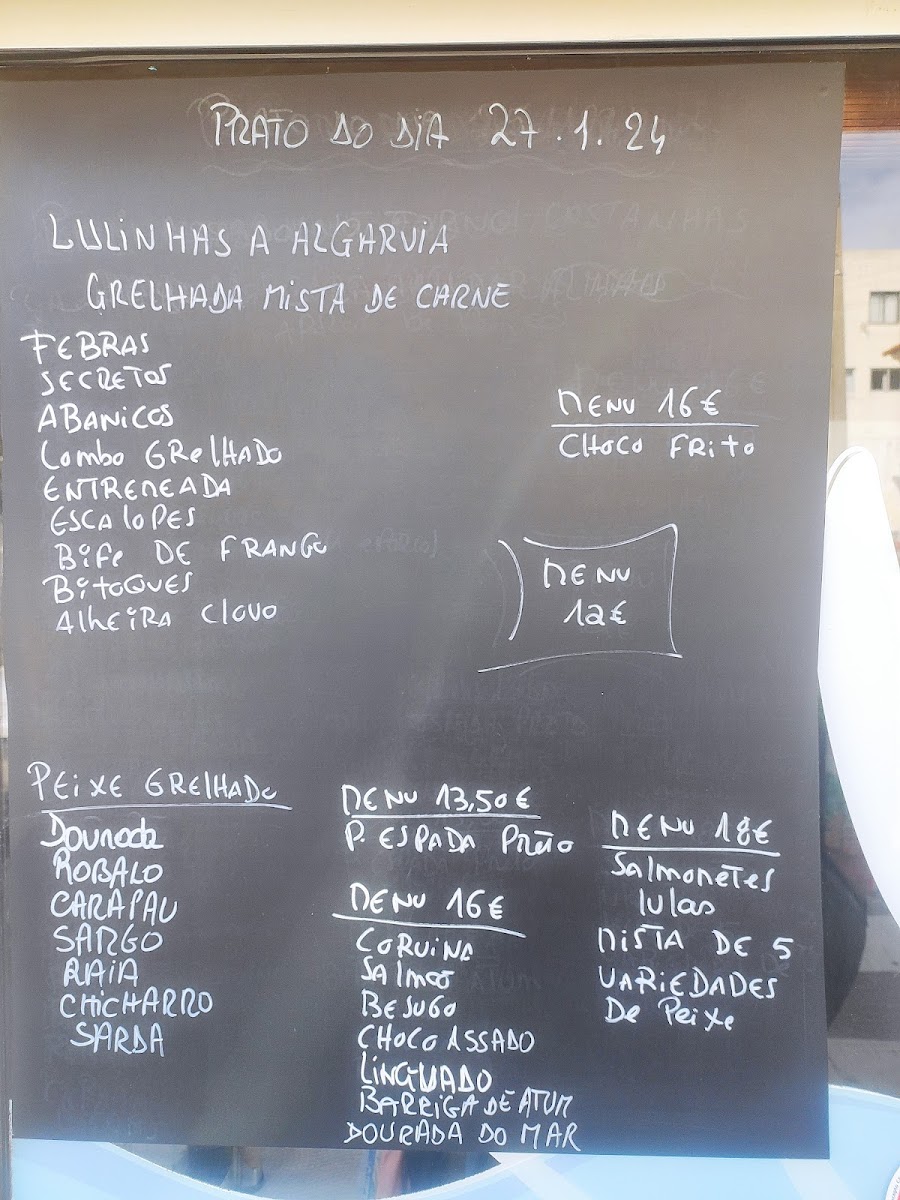 PRATO DO DIA 27.1.24
LULINHAS A ALGARVIA
GRELHADA MISTA DE CARNE
FEBRAS
SECRETOS
ABANICOS
COMBO GRELHADO
ENTREMEADA
ESCALOPES
BIFE DE FRANGO
BITOQUES
ALHEIRA C/OVO
MENU 16€
CHOCO FRITO
MENU
12€
PEIXE GRELHADO
DOURADA
ROBALO
CARAPAU
SARGO
RAIA
CHICHARRO
SARDA
MENU 13,50€
P. ESPADA PRETO
MENU 16€
CORVINA
SALMÃO
BESUGO
CHOCO ASSADO
LINGUADO
BARRIGA DE ATUM
DOURADA DO MAR
MENU 18€
SALMONETES
LULAS
MISTA DE 5
VARIEDADES
DE PEIXE